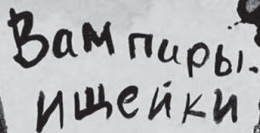 Вампиры.
ищейки